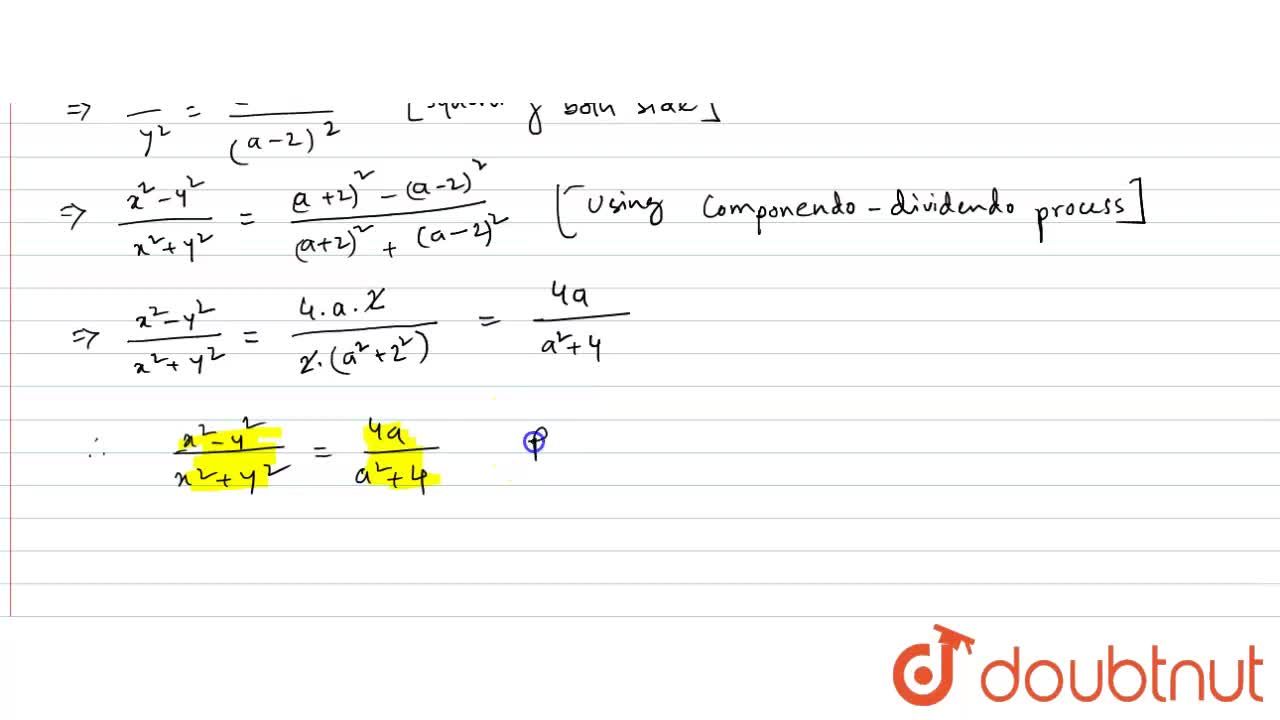 ⇒ /y² = /(a-2)² [ both side]
⇒ (x²-y²)/(x²+y²) = ((a+2)² - (a-2)²)/((a+2)² + (a-2)²) [Using Componendo-dividendo process]
⇒ (x²-y²)/(x²+y²) = (4.a.2)/(2.(a²+2²)) = 4a/(a²+4)
∴ (x²-y²)/(x²+y²) = 4a/(a²+4) P
doubtnut